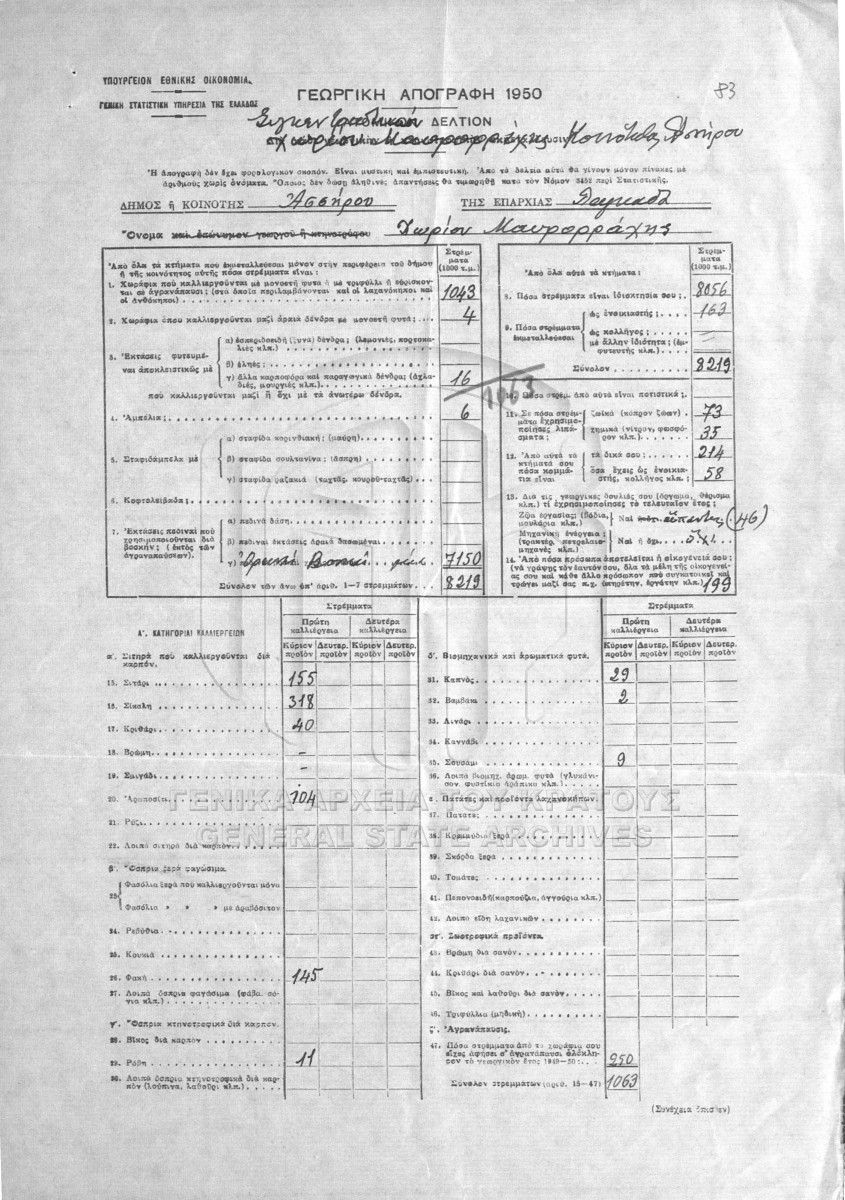 ΥΠΟΥΡΓΕΙΟΝ ΕΘΝΙΚΗΣ ΟΙΚΟΝΟΜΙΑΣ
ΓΕΝΙΚΗ ΣΤΑΤΙΣΤΙΚΗ ΥΠΗΡΕΣΙΑ ΤΗΣ ΕΛΛΑΔΟΣ
ΓΕΩΡΓΙΚΗ ΑΠΟΓΡΑΦΗ 1950
83
Συγκεντρωτικόν ΔΕΛΤΙΟΝ
χωρίου Μαυρορράχης Κοινότητος Ἀσσήρου
Ἡ ἀπογραφὴ δὲν ἔχει φορολογικὸν σκοπόν. Εἶναι μυστικὴ καὶ ἐμπιστευτική. Ἀπὸ τὰ δελτία αὐτὰ θὰ γίνουν μόνον πίνακες μὲ
ἀριθμοὺς χωρὶς ὀνόματα. Ὅποιος δὲν δώσῃ ἀληθινὲς ἀπαντήσεις θὰ τιμωρηθῇ κατὰ τὸν Νόμον 3452 περὶ Στατιστικῆς.
ΔΗΜΟΣ ἢ ΚΟΙΝΟΤΗΣ Ἀσσήρου ΤΗΣ ΕΠΑΡΧΙΑΣ Λαγκαδᾶ
Ὄνομα καὶ ἐπώνυμον γεωργοῦ ἢ κτηνοτρόφου Χωρίου Μαυρορράχης
Ἀπὸ ὅλα τὰ κτήματα ποὺ ἐκμεταλλεύεσαι μόνον στὴν περιφέρεια τοῦ δήμου
ἢ τῆς κοινότητος αὐτῆς πόσα στρέμματα εἶναι:
Στρέμματα
(1000 τ.μ.)
1. Χωράφια ποὺ καλλιεργοῦνται μὲ μονοετῆ φυτὰ ἢ μὲ τριφύλλι ἢ εὑρίσκονται
σὲ ἀγρανάπαυσι; (στὰ ὁποῖα περιλαμβάνονται καὶ οἱ λαχανόκηποι καὶ
οἱ ἀνθόκηποι) 1043
2. Χωράφια ὅπου καλλιεργοῦνται μαζὶ ἀραιὰ δένδρα μὲ μονοετῆ φυτά; 4
3. Ἐκτάσεις φυτευμέναι ἀποκλειστικῶς μὲ
α) ἑσπεριδοειδῆ (ξυνὰ) δένδρα; (λεμονιές, πορτοκαλιές κλπ.)
β) ἐληές;
γ) ἄλλα καρποφόρα καὶ παραγωγικὰ δένδρα; (ἀχλαδιές, μουρνιὲς κλπ.) 16
ποὺ καλλιεργοῦνται μαζὶ ἢ ὄχι μὲ τὰ ἀνωτέρω δένδρα.
1063
4. Ἀμπέλια; 6
5. Σταφιδάμπελα μὲ
α) σταφίδα κορινθιακή; (μαύρη)
β) σταφίδα σουλτανίνα; (ἄσπρη)
γ) σταφίδα ραζακιὰ (ταχτᾶς, κουροῦ-ταχτᾶς)
6. Κοφτολείβαδα;
7. Ἐκτάσεις πεδιναὶ ποὺ χρησιμοποιοῦνται διὰ βοσκήν; (ἐκτὸς τῶν ἀγραναπαύσεων).
α) πεδινὰ δάση
β) πεδιναὶ ἐκτάσεις ἀραιὰ δασωμέναι
γ) Ὀρεινή Βοσκή 7150
Σύνολον τῶν ἄνω ὑπ' ἀριθ. 1—7 στρεμμάτων 8219
Ἀπὸ ὅλα αὐτὰ τὰ κτήματα:
Στρέμματα
(1000 τ.μ.)
8. Πόσα στρέμματα εἶναι ἰδιοκτησία σου; 8056
9. Πόσα στρέμματα ἐκμεταλλεύεσαι
ὡς ἐνοικιαστής; 163
ὡς κολλήγος;
μὲ ἄλλην ἰδιότητα; (ἐμφυτευτὴς κλπ.)
Σύνολον 8219
10. Πόσα στρέμ. ἀπὸ αὐτὰ εἶναι ποτιστικά;
11. Σὲ πόσα στρέμματα ἐχρησιμοποίησες λιπάσματα;
ζωϊκὰ (κόπρον ζώων) 73
χημικὰ (νίτρον, φωσφόρον κλπ.) 35
12. Ἀπὸ αὐτὰ τὰ κτήματά σου πόσα κομμάτια εἶναι
τὰ δικά σου; 214
ὅσα ἔχεις ὡς ἐνοικιαστής, κολλήγος κλπ.; 58
13. Διὰ τὶς γεωργικὲς δουλιές σου (ὄργωμα, θέρισμα
κλπ.) τί ἐχρησιμοποίησες τὸ τελευταῖον ἔτος;
Ζῶα ἐργασίας; (βόδια, μουλάρια κλπ.) Ναὶ (46)
Μηχανικὴ ἐνέργεια; (τρακτέρ, πετρελαιομηχανὲς κλπ.) Ναὶ ἢ ὄχι ὄχι
14. Ἀπὸ πόσα πρόσωπα ἀποτελεῖται ἡ οἰκογένειά σου;
(νὰ γράψῃς τὸν ἑαυτόν σου, ὅλα τὰ μέλη τῆς οἰκογενείας
σου καὶ κάθε ἄλλο πρόσωπον ποὺ συγκατοικεῖ καὶ
τρώγει μαζί σας π.χ. ὑπηρέτην, ἐργάτην κλπ.) 199
Στρέμματα
Α'. ΚΑΤΗΓΟΡΙΑΙ ΚΑΛΛΙΕΡΓΕΙΩΝ
Πρώτη καλλιέργεια Δευτέρα καλλιέργεια
Κύριον προϊόν Δευτερ. προϊόν Κύριον προϊόν Δευτερ. προϊόν
α'. Σιτηρὰ ποὺ καλλιεργοῦνται διὰ καρπόν.
15. Σιτάρι 155
16. Σίκαλη 318
17. Κριθάρι 40
18. Βρώμη -
19. Σμιγάδι -
20. Ἀραποσίτι 104
21. Ρύζι
22. Λοιπὰ σιτηρὰ διὰ καρπόν
β'. Ὄσπρια ξερὰ φαγώσιμα.
23 Φασόλια ξερὰ ποὺ καλλιεργοῦνται μόνα
Φασόλια » » » μὲ ἀραβόσιτον
24. Ρεβύθια
25. Κουκιὰ
26. Φακῆ 145
27. Λοιπὰ ὄσπρια φαγώσιμα (φάβα, σόγια κλπ.)
γ'. Ὄσπρια κτηνοτροφικὰ διὰ καρπόν.
28. Βίκος διὰ καρπὸν
29. Ρόβη 11
30. Λοιπὰ ὄσπρια κτηνοτροφικὰ διὰ καρπὸν (λούπινα, λαθούρι κλπ.)
Στρέμματα
Πρώτη καλλιέργεια Δευτέρα καλλιέργεια
Κύριον προϊόν Δευτερ. προϊόν Κύριον προϊόν Δευτερ. προϊόν
δ'. Βιομηχανικὰ καὶ ἀρωματικὰ φυτά.
31. Καπνὸς 29
32. Βαμβάκι 2
33. Λινάρι
34. Καννάβι
35. Σουσάμι 9
36. Λοιπὰ βιομηχ. ἀρωμ. φυτὰ (γλυκάνισον, φυστίκια ἀράπικα κλπ.)
ε. Πατάτες καὶ προϊόντα λαχανοκήπων.
37. Πατάτες
38. Κρεμμύδια ξερὰ
39. Σκόρδα ξερὰ
40. Τομάτες
41. Πεπονοειδῆ (καρπούζια, ἀγγούρια κλπ.)
42. Λοιπὰ εἴδη λαχανικῶν
στ'. Ζωοτροφικὰ προϊόντα.
43. Βρώμη διὰ σανὸν
44. Κριθάρι διὰ σανὸν
45. Βίκος καὶ λαθούρι διὰ σανὸν
46. Τριφύλλια (μηδικὴ)
ζ'. Ἀγρανάπαυσις.
47. Πόσα στρέμματα ἀπὸ τὰ χωράφια σου
εἶχες ἀφήσει σ' ἀγρανάπαυσι ὁλόκληρον
τὸ γεωργικὸν ἔτος 1949—50; 250
Σύνολον στρεμμάτων (ἀριθ. 15—47) 1063
(Συνέχεια ὄπισθεν)
ΓΕΝΙΚΑ ΑΡΧΕΙΑ ΤΟΥ ΚΡΑΤΟΥΣ
GENERAL STATE ARCHIVES